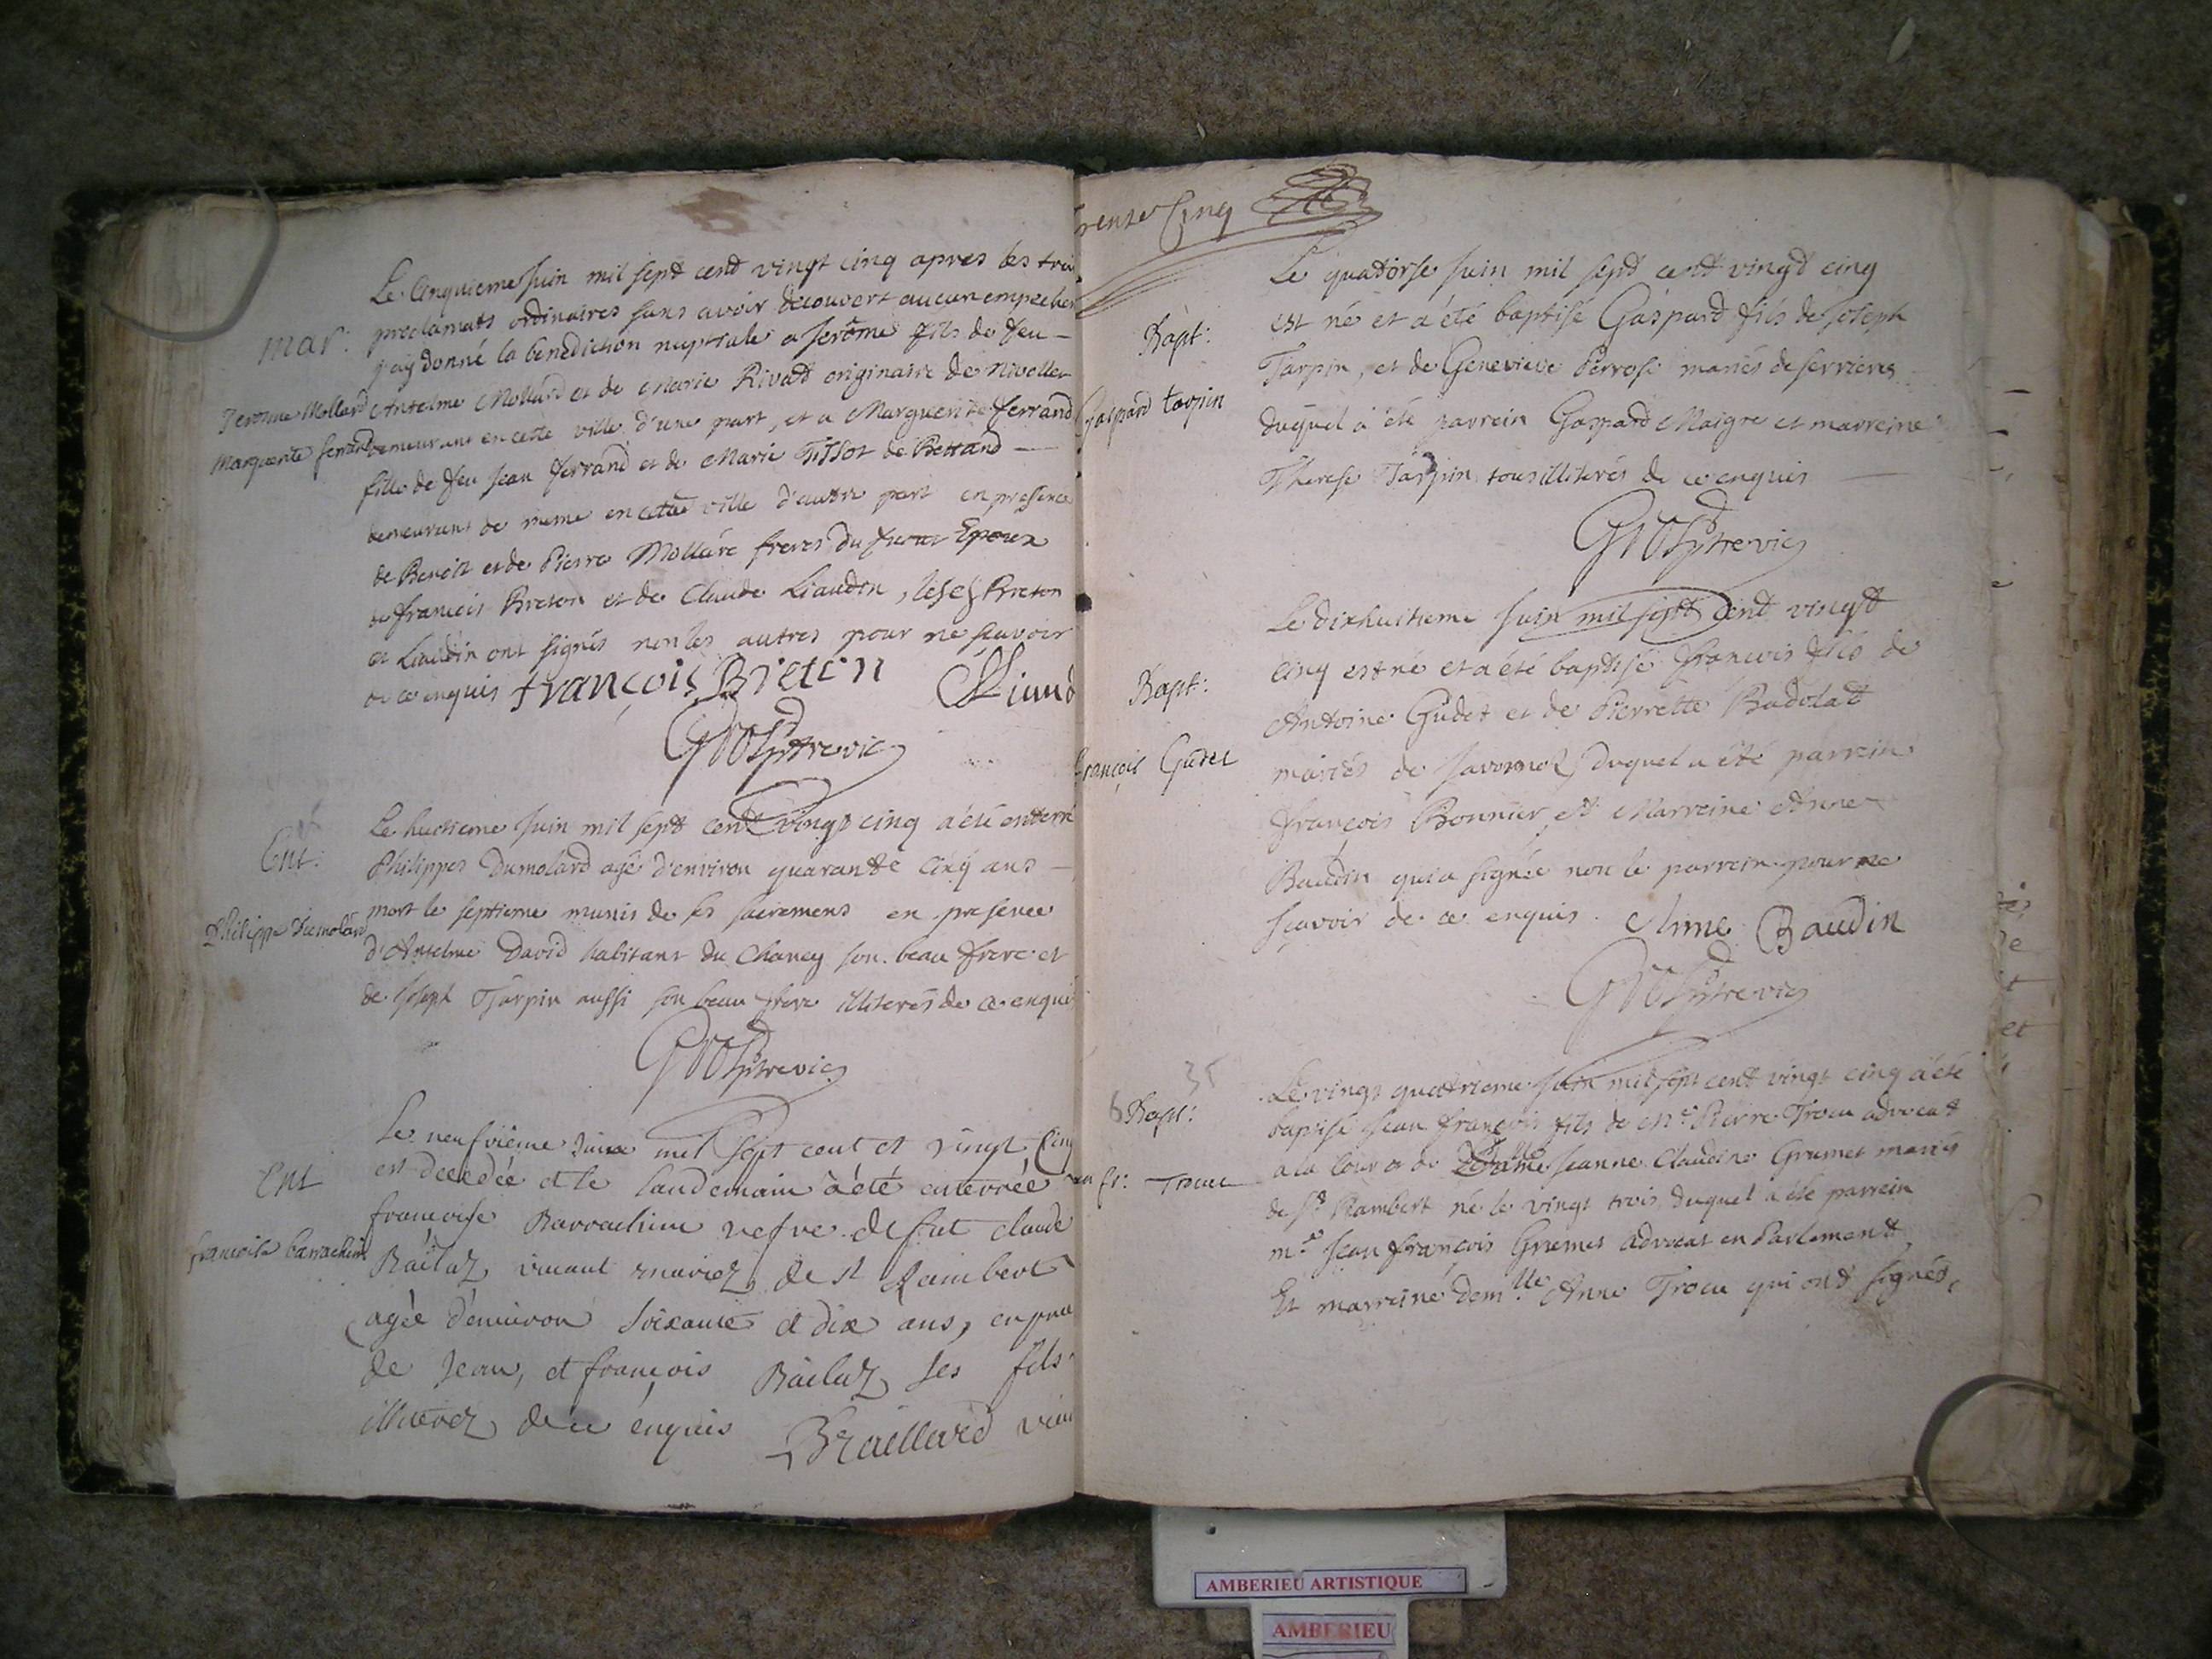 Le Cinquieme Juin mil sept cent vingt cinq apres les trois
mar: proclamats ordinaires sans avoir decouvert aucun empeche
j'ay donné la benediction nuptiale a Jerôme fils de feu
Jerome Mollard Antelme Mollard et de Marie Rivat originaire de Nivollet
Marguerite ferrand demeurant en cette ville d'une part, et a Marguerite ferrand
fille de feu Jean ferrand et de Marie Tissot de Bettand
demeurant de meme en cette ville d'autre part en presence
de Benoit et de Pierre Mollard freres du futur Epoux
de françois Breton et de Claude Liaudin, lesq Breton
et Liaudin ont signés non les autres pour ne scavoir
de ce enquis françois Breton
Le huitieme Juin mil sept cent vingt cinq a été enterré
Ent: Philippes Dumolard agé d'environ quarante cinq ans
mort le septieme munis de ses sacremens en presence
Philippe Dumolard
d'Antelme David habitant du Chaney son beau frere et
de Joseph Tarpin aussi son beau frere illiterés de ce enqui
Le neufvième Juin mil sept cent et vingt Cinq
Ent est decedée et le landemain a été enterrée
francoise Barrachin vefve de fut claude
francoise barrachin
Railaz vivant mariez de st Rambert
agée d'environ soixante et dix ans, en
de Jean, et françois Railaz ses fils
illiterez de ce enquis Braillard
trente Cinq
Le quatorse Juin mil sept cent vingt cinq
Bapt: est né et a été baptisé Gaspard fils de Joseph
Tarpin, et de Genevieve Perrose mariés de serrieres
Gaspard tarpin duquel a été parrein Gaspard Maigre et marreine
Therese Tarpin tous illiterés de ce enquis
Le dixhuitieme Juin mil sept cent vingt
cinq est né et a été baptisé françois fils de
Bapt: Antoine Gudet et de Pierrette Badolat
françois Gudet mariés de Javornoz, duquel a été parrein
françois Bonnier et Marreine Anne
Baudin qui a signée non le parrein pour ne
sçavoir de ce enquis. Anne Baudin
35
Le vingt quatrieme Juin mil sept cent vingt cinq a été
6 Bapt: baptisé Jean françois fils de Me Pierre Trocu advocat
a la Cour et de Jeanne Claudine Grumet mariés
fr: Trocu
de St Rambert né le vingt trois, duquel a été parrein
me Jean françois Grumet advocat en Parlement
Et marreine demlle Anne Trocu qui ont signés
AMBERIEU ARTISTIQUE
AMBERIEU